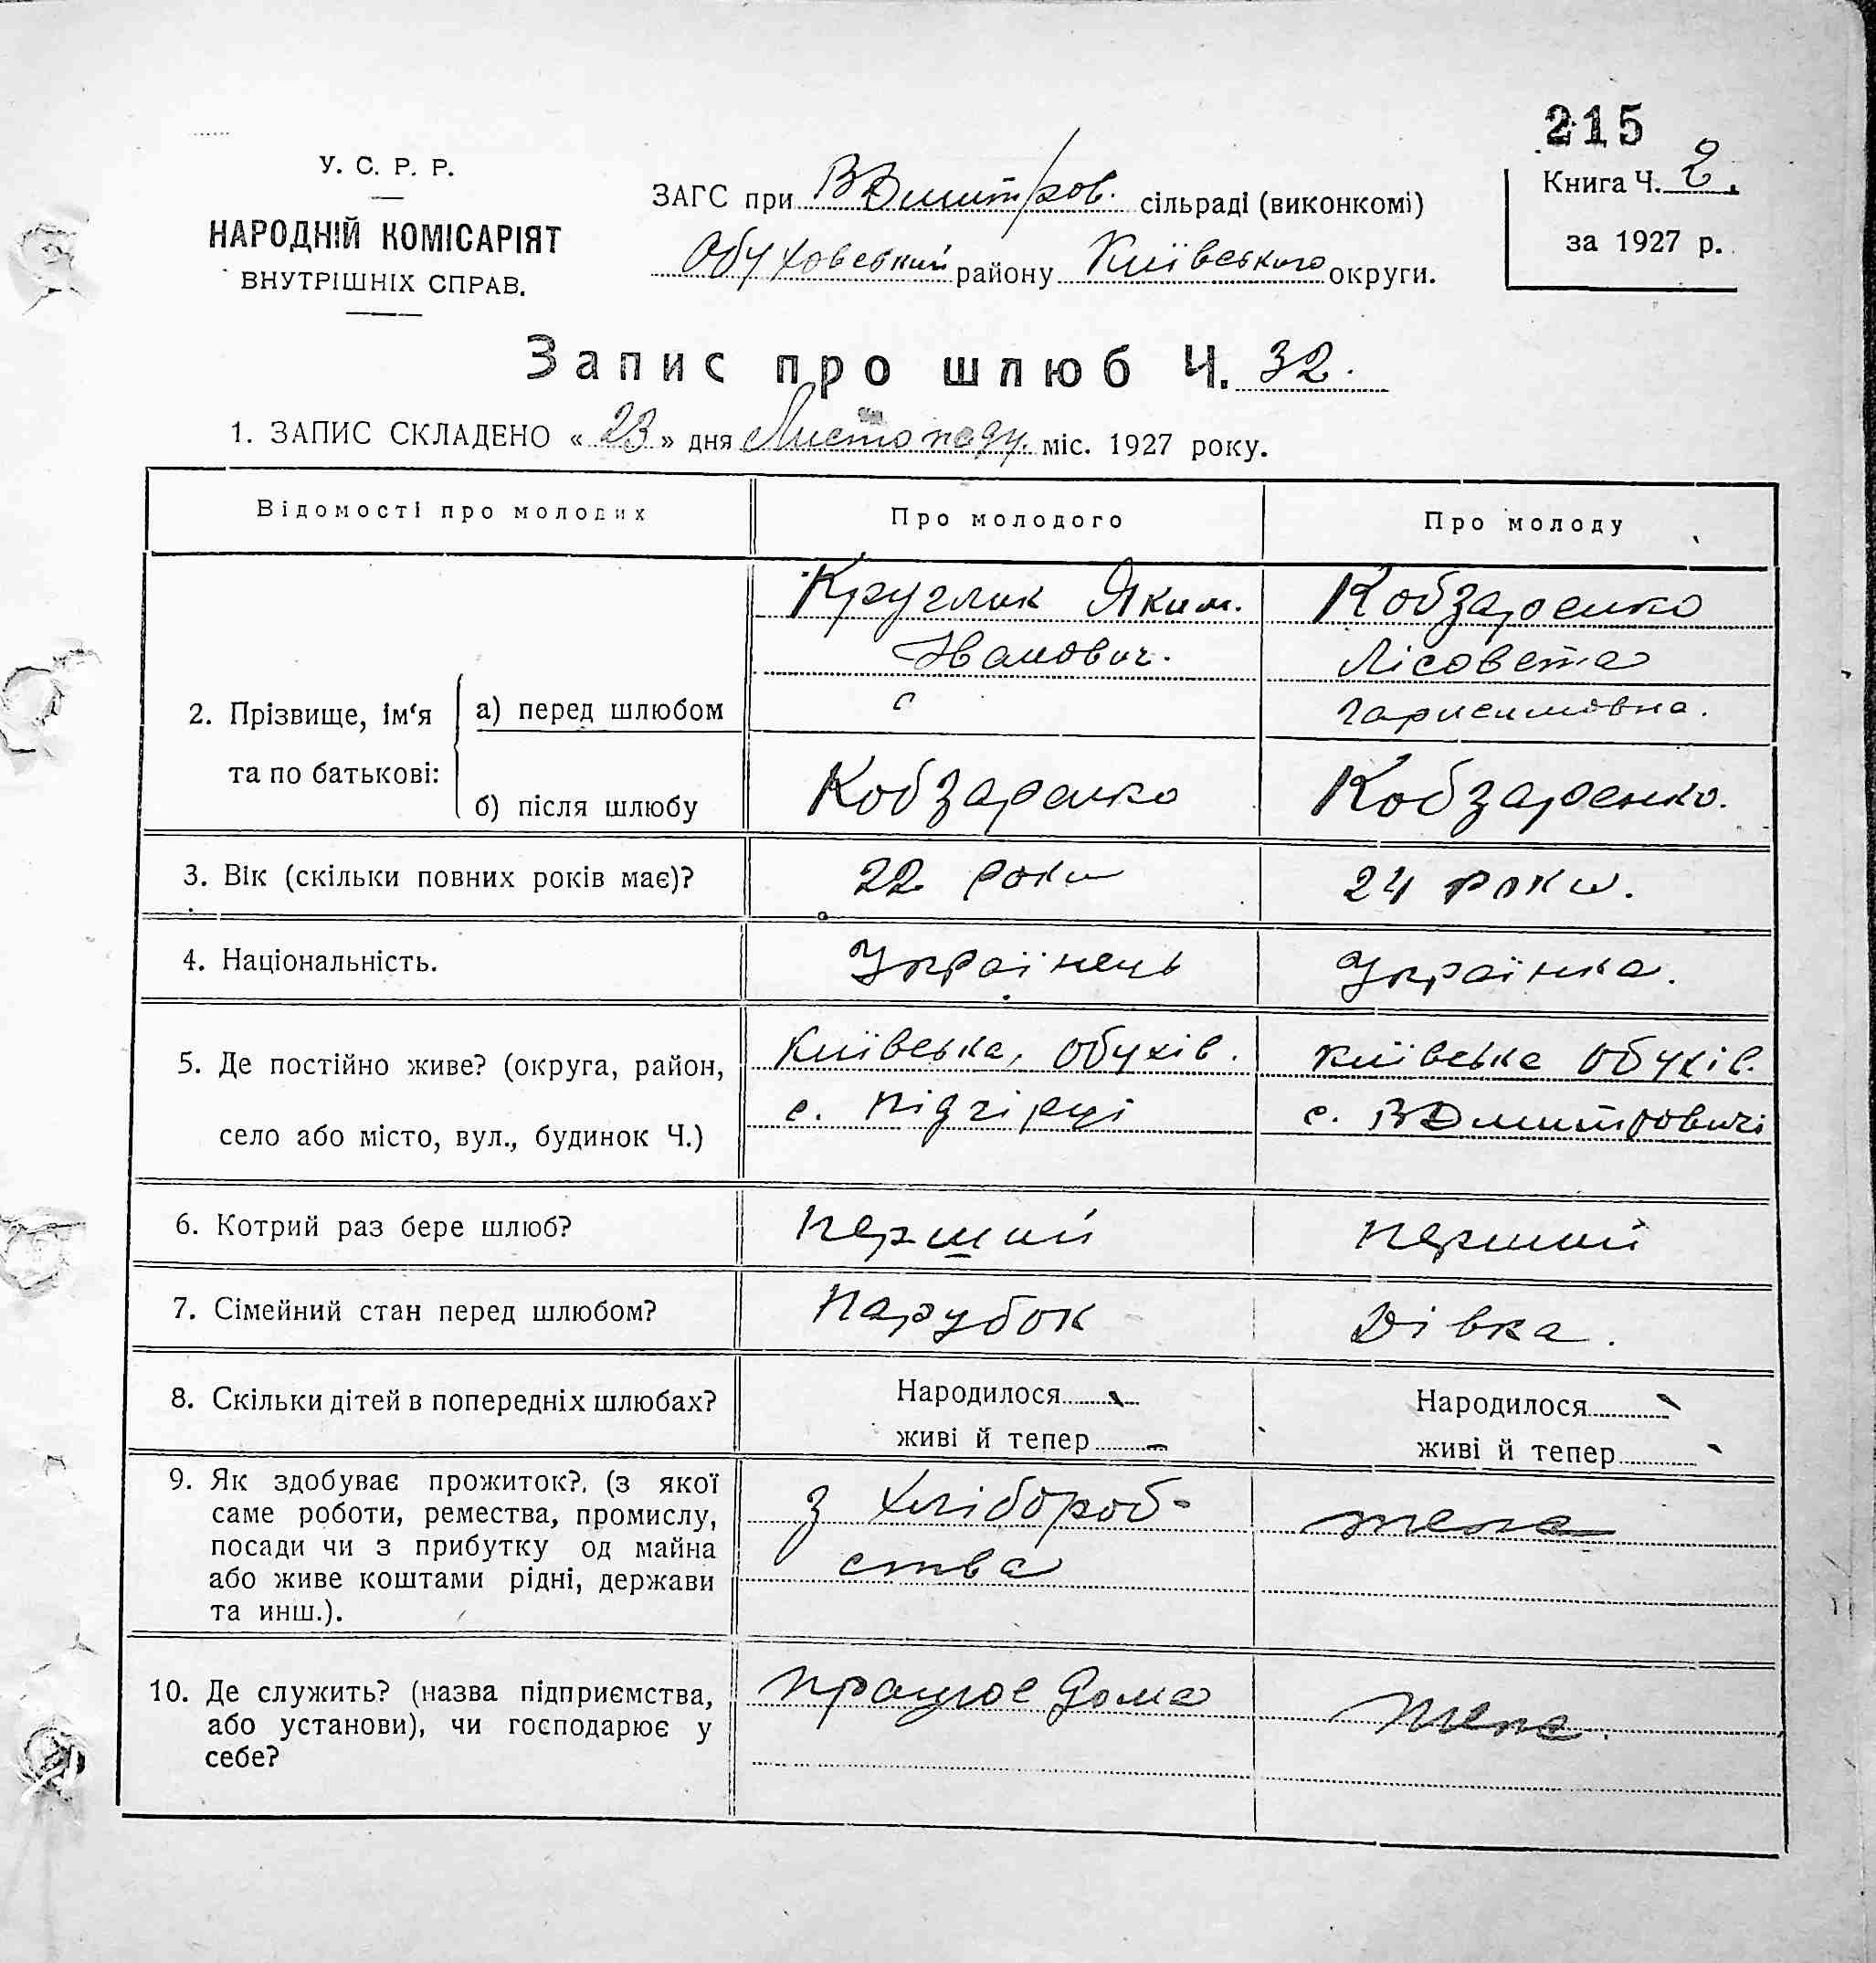 215
У. С. Р. Р.
НАРОДНІЙ КОМІСАРІЯТ
ВНУТРІШНІХ СПРАВ.
ЗАГС при ВДмитров. сільраді (виконкомі)
Обуховський району Київського округи.
Книга Ч. 2.
за 1927 р.
Запис про шлюб Ч. 32.
1. ЗАПИС СКЛАДЕНО « 23 » дня Листопаду. міс. 1927 року.
Відомості про молодих Про молодого Про молоду
Круглик Яким. Кобзаренко
Іванович. Лісовета
2. Прізвище, ім‘я а) перед шлюбом Гарисимовна.
та по батькові:
б) після шлюбу Кобзаренко Кобзаренко.
3. Вік (скільки повних років має)? 22 роки 24 роки.
4. Національність. Українець Українка.
5. Де постійно живе? (округа, район, Київська, Обухів. Київська Обухів.
село або місто, вул., будинок Ч.) с. Підгірці с. ВДмитровичі
6. Котрий раз бере шлюб? перший перший
7. Сімейний стан перед шлюбом? Парубок Дівка.
8. Скільки дітей в попередніх шлюбах? Народилося Народилося
живі й тепер живі й тепер
9. Як здобуває прожиток?, (з якої з хлібороб-
саме роботи, ремества, промислу,
посади чи з прибутку од майна ства
або живе коштами рідні, держави
та инш.).
10. Де служить? (назва підприємства, працює дома
або установи), чи господарює у
себе?